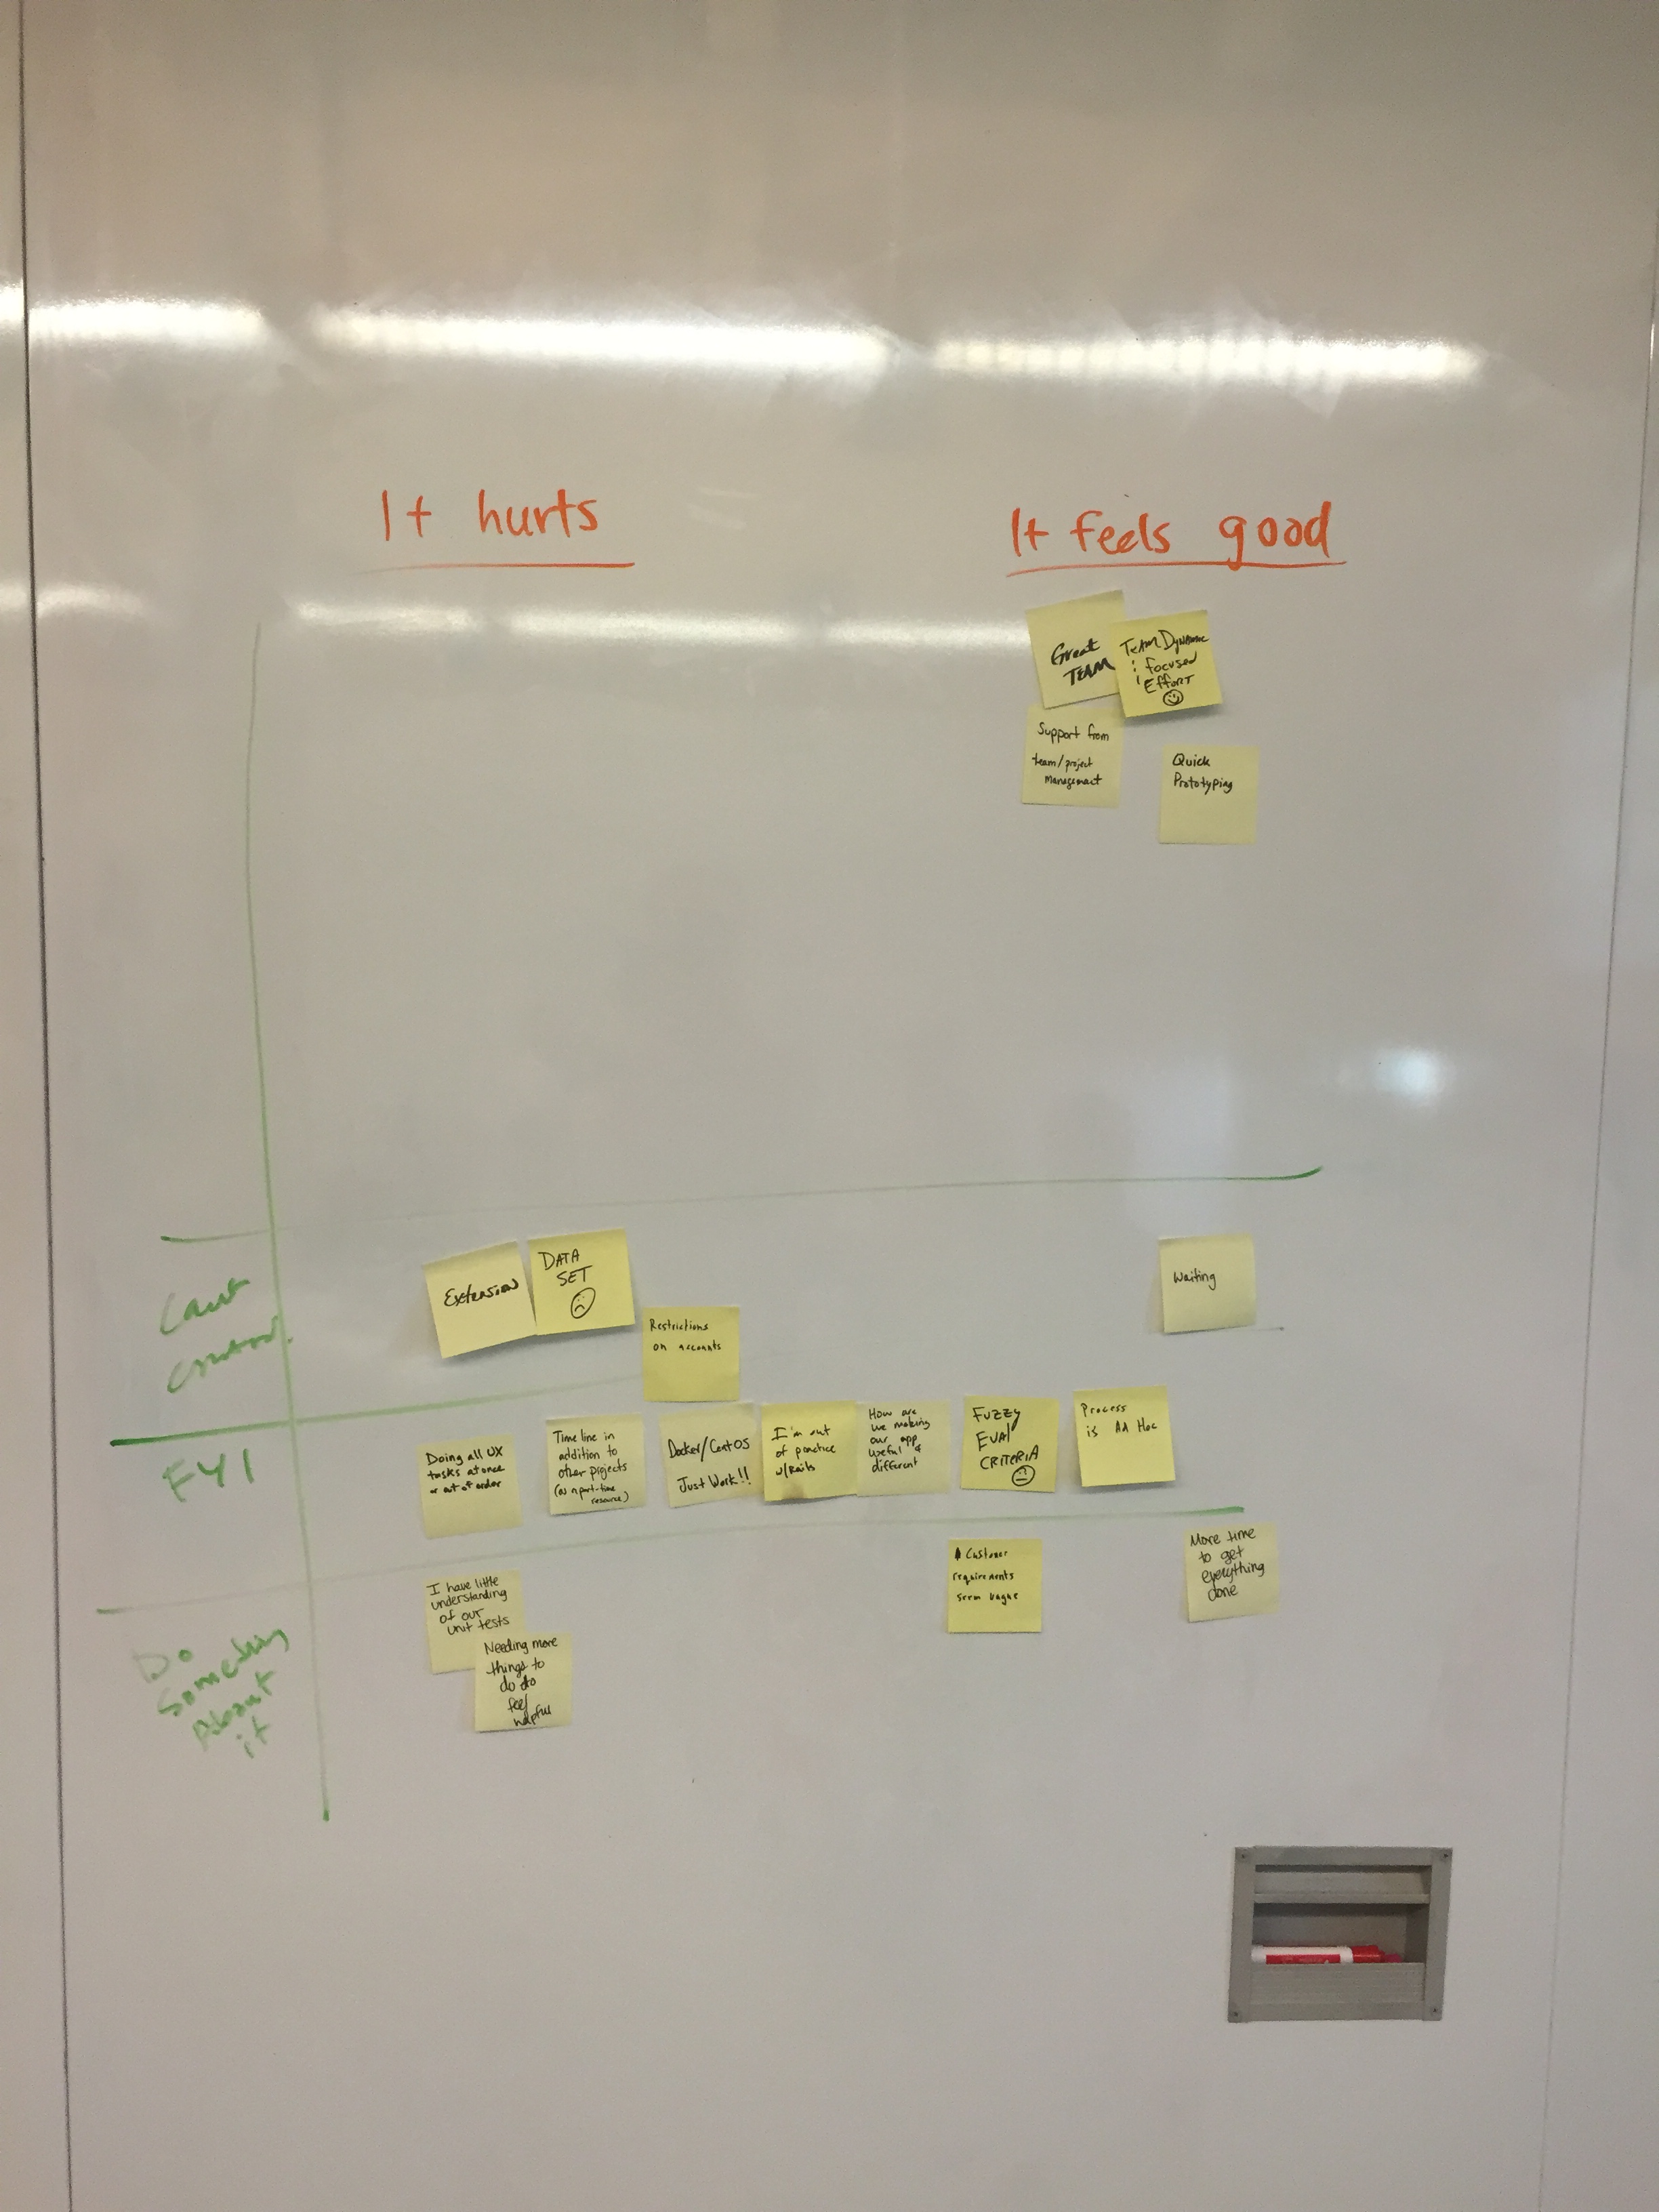 It hurts
It feels good
Great
TEAM
TEAM DYNAMIC
& focused
EFFORT
Support from
team/project
management
Quick
Prototyping
Cant
control
Extension
DATA
SET
Restrictions
on accounts
Waiting
FYI
Doing all UX
tasks at once
or out of order
Time line in
addition to
other projects
(as a part-time
resource)
Docker/CentOS
Just Work!!
I'm out
of practice
w/Rails
How are
we making
our app
useful &
different
FUZZY
EVAL
CRITERIA
Process
is Ad Hoc
Do
Something
About
it
I have little
understanding
of our
unit tests
Needing more
things to
do to
feel
helpful
Customer
requirements
seem vague
More time
to get
everything
done